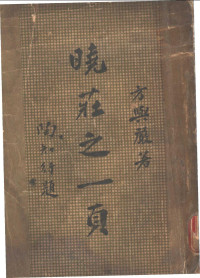 方與嚴著
曉莊之一頁
陶知行題